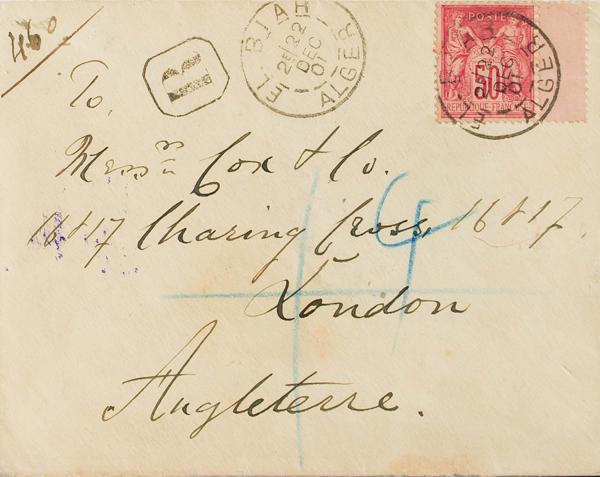 460
R
EL-BIAR
2E
22
DEC
01
ALGER
POSTE
50
REPUBLIQUE FRANCAISE
EL-BIAR
2E
22
DEC
01
ALGER
To,
Messrs Cox & Co.
16 & 17 Charing Cross, 16 & 17.
London
Angleterre.
4